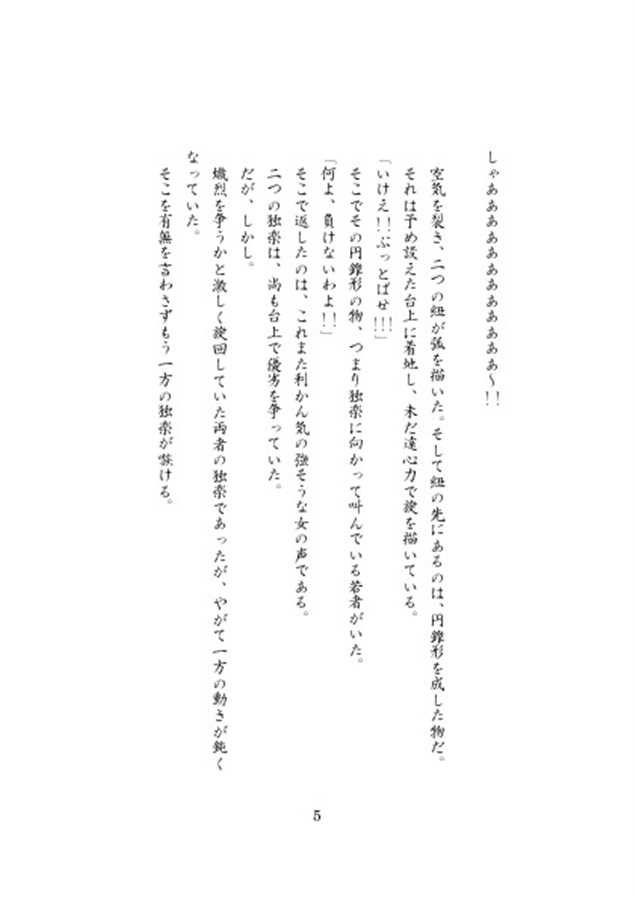 しゃあああああああああああああ〜!!
空気を裂き、二つの紐が弧を描いた。そして紐の先にあるのは、円錐形を成した物だ。
それは予め設えた台上に着地し、未だ遠心力で旋を描いている。
「いけえ!!ぶっとばせ!!!」
そこでその円錐形の物、つまり独楽に向かって叫んでいる若者がいた。
「何よ、負けないわよ!!」
そこで返したのは、これまた利かん気の強そうな女の声である。
二つの独楽は、尚も台上で優劣を争っていた。
だが、しかし。
熾烈を争うかと激しく旋回していた両者の独楽であったが、やがて一方の動きが鈍く
なっていた。
そこを有無を言わさずもう一方の独楽が嗾ける。
5